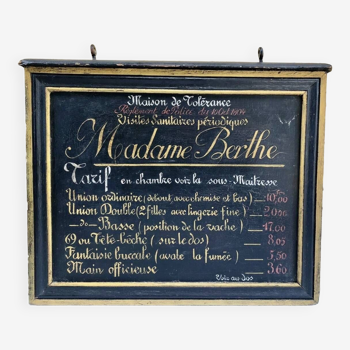 Maison de Tolérance
Règlement de Police du 16 Oct 1904
Visites Sanitaires périodiques
Madame Berthe
Tarif en chambre voir la sous-Maîtresse
Union ordinaire (debout avec chemise et bas) — 10,00
Union Double (2 filles avec lingerie fine) —
—do— Basse (position de la vache) — 17,00
69 ou Tête-bêche (sur le dos) — 8,05
Fantaisie buccale (avale la fumée) — 5,50
Main officieuse — 3,60